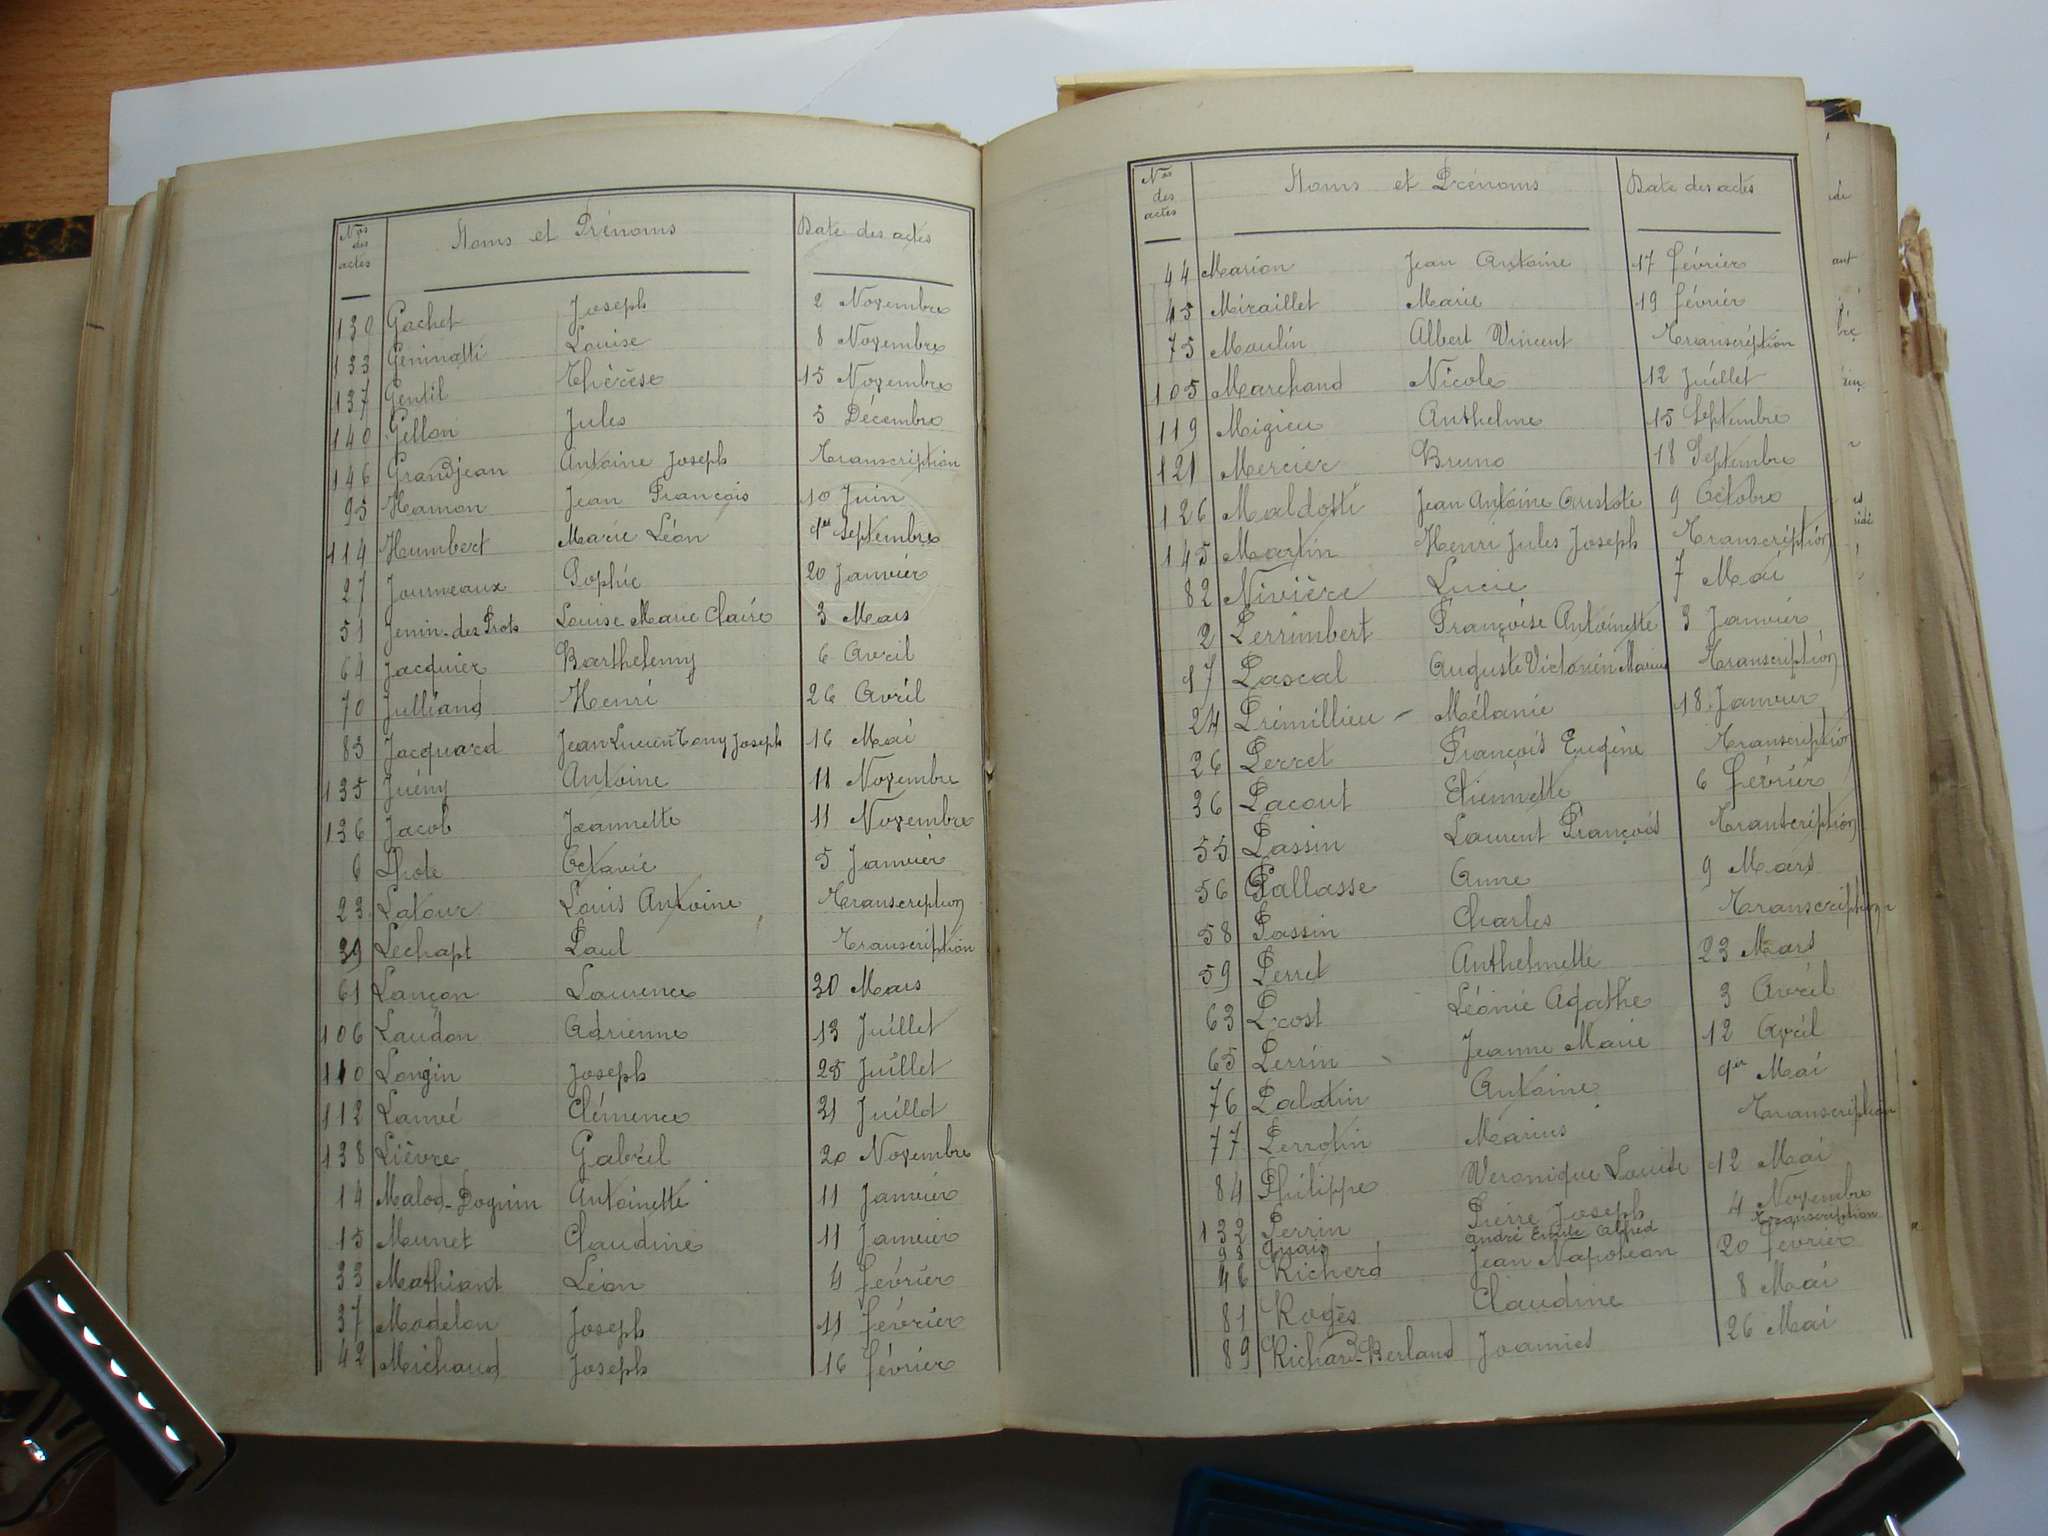 Nos des actes Noms et Prénoms Date des actes
130 Gachet Joseph 2 Novembre
133 Geninatti Louise 8 Novembre
137 Gentil Thérèse 15 Novembre
140 Gellon Jules 5 Décembre
146 Grandjean Antoine Joseph Transcription
95 Hamon Jean François 10 Juin
114 Humbert Marie Léon 1er Septembre
27 Journeaux Sophie 20 Janvier
51 Jenin-des Prots Louise Marie Claire 3 Mars
64 Jacquier Barthelemy 6 Avril
70 Julliand Henri 26 Avril
85 Jacquard Jean Lucien Tony Joseph 16 Mai
135 Juény Antoine 11 Novembre
136 Jacob Jeannette 11 Novembre
6 Lhote Octavie 5 Janvier
23 Latour Louis Antoine Transcription
39 Lechapt Paul Transcription
61 Lançon Laurence 30 Mars
106 Laudon Adrienne 13 Juillet
110 Longin Joseph 25 Juillet
112 Lamé Clémence 31 Juillet
138 Lièvre Gabriel 20 Novembre
14 Malod-Dognin Antoinette 11 Janvier
15 Munet Claudine 11 Janvier
33 Mathiant Léon 4 février
37 Modelon Joseph 11 février
42 Michaud Joseph 16 février
Nos des actes Noms et Prénoms Date des actes
44 Marion Jean Antoine 17 février
45 Miraillet Marie 19 février
75 Moulin Albert Vincent Transcription
105 Marchand Nicole 12 Juillet
119 Migieu Anthelme 15 Septembre
121 Mercier Bruno 18 Septembre
126 Maldotti Jean Antoine 9 Octobre
145 Martin Henri Jules Joseph Transcription
82 Nivière Lucie 7 Mai
2 Perrimbert Françoise Antoinette 3 Janvier
17 Pascal Auguste Victorin Marius Transcription
24 Prémillieu Mélanie 18 Janvier
26 Perret François Eugène Transcription
36 Pacout Etiennette 6 février
55 Passin Laurent François Transcription
56 Pallasse Anne 9 Mars
58 Passin Charles Transcription
59 Perret Anthelmette 23 Mars
63 Prost Léonie Agathe 3 Avril
65 Perrin Jeanne Marie 12 Avril
76 Palatin Antoine 1er Mai
77 Perrotin Marius Transcription
84 Philippe Veronique Louise 12 Mai
132 Perrin Pierre Joseph 4 Novembre
98 Quais André Alfred Transcription
46 Richerd Jean Napoléon 20 fevrier
81 Rogès Claudine 8 Mai
89 Richard-Berland Joannies 26 Mai